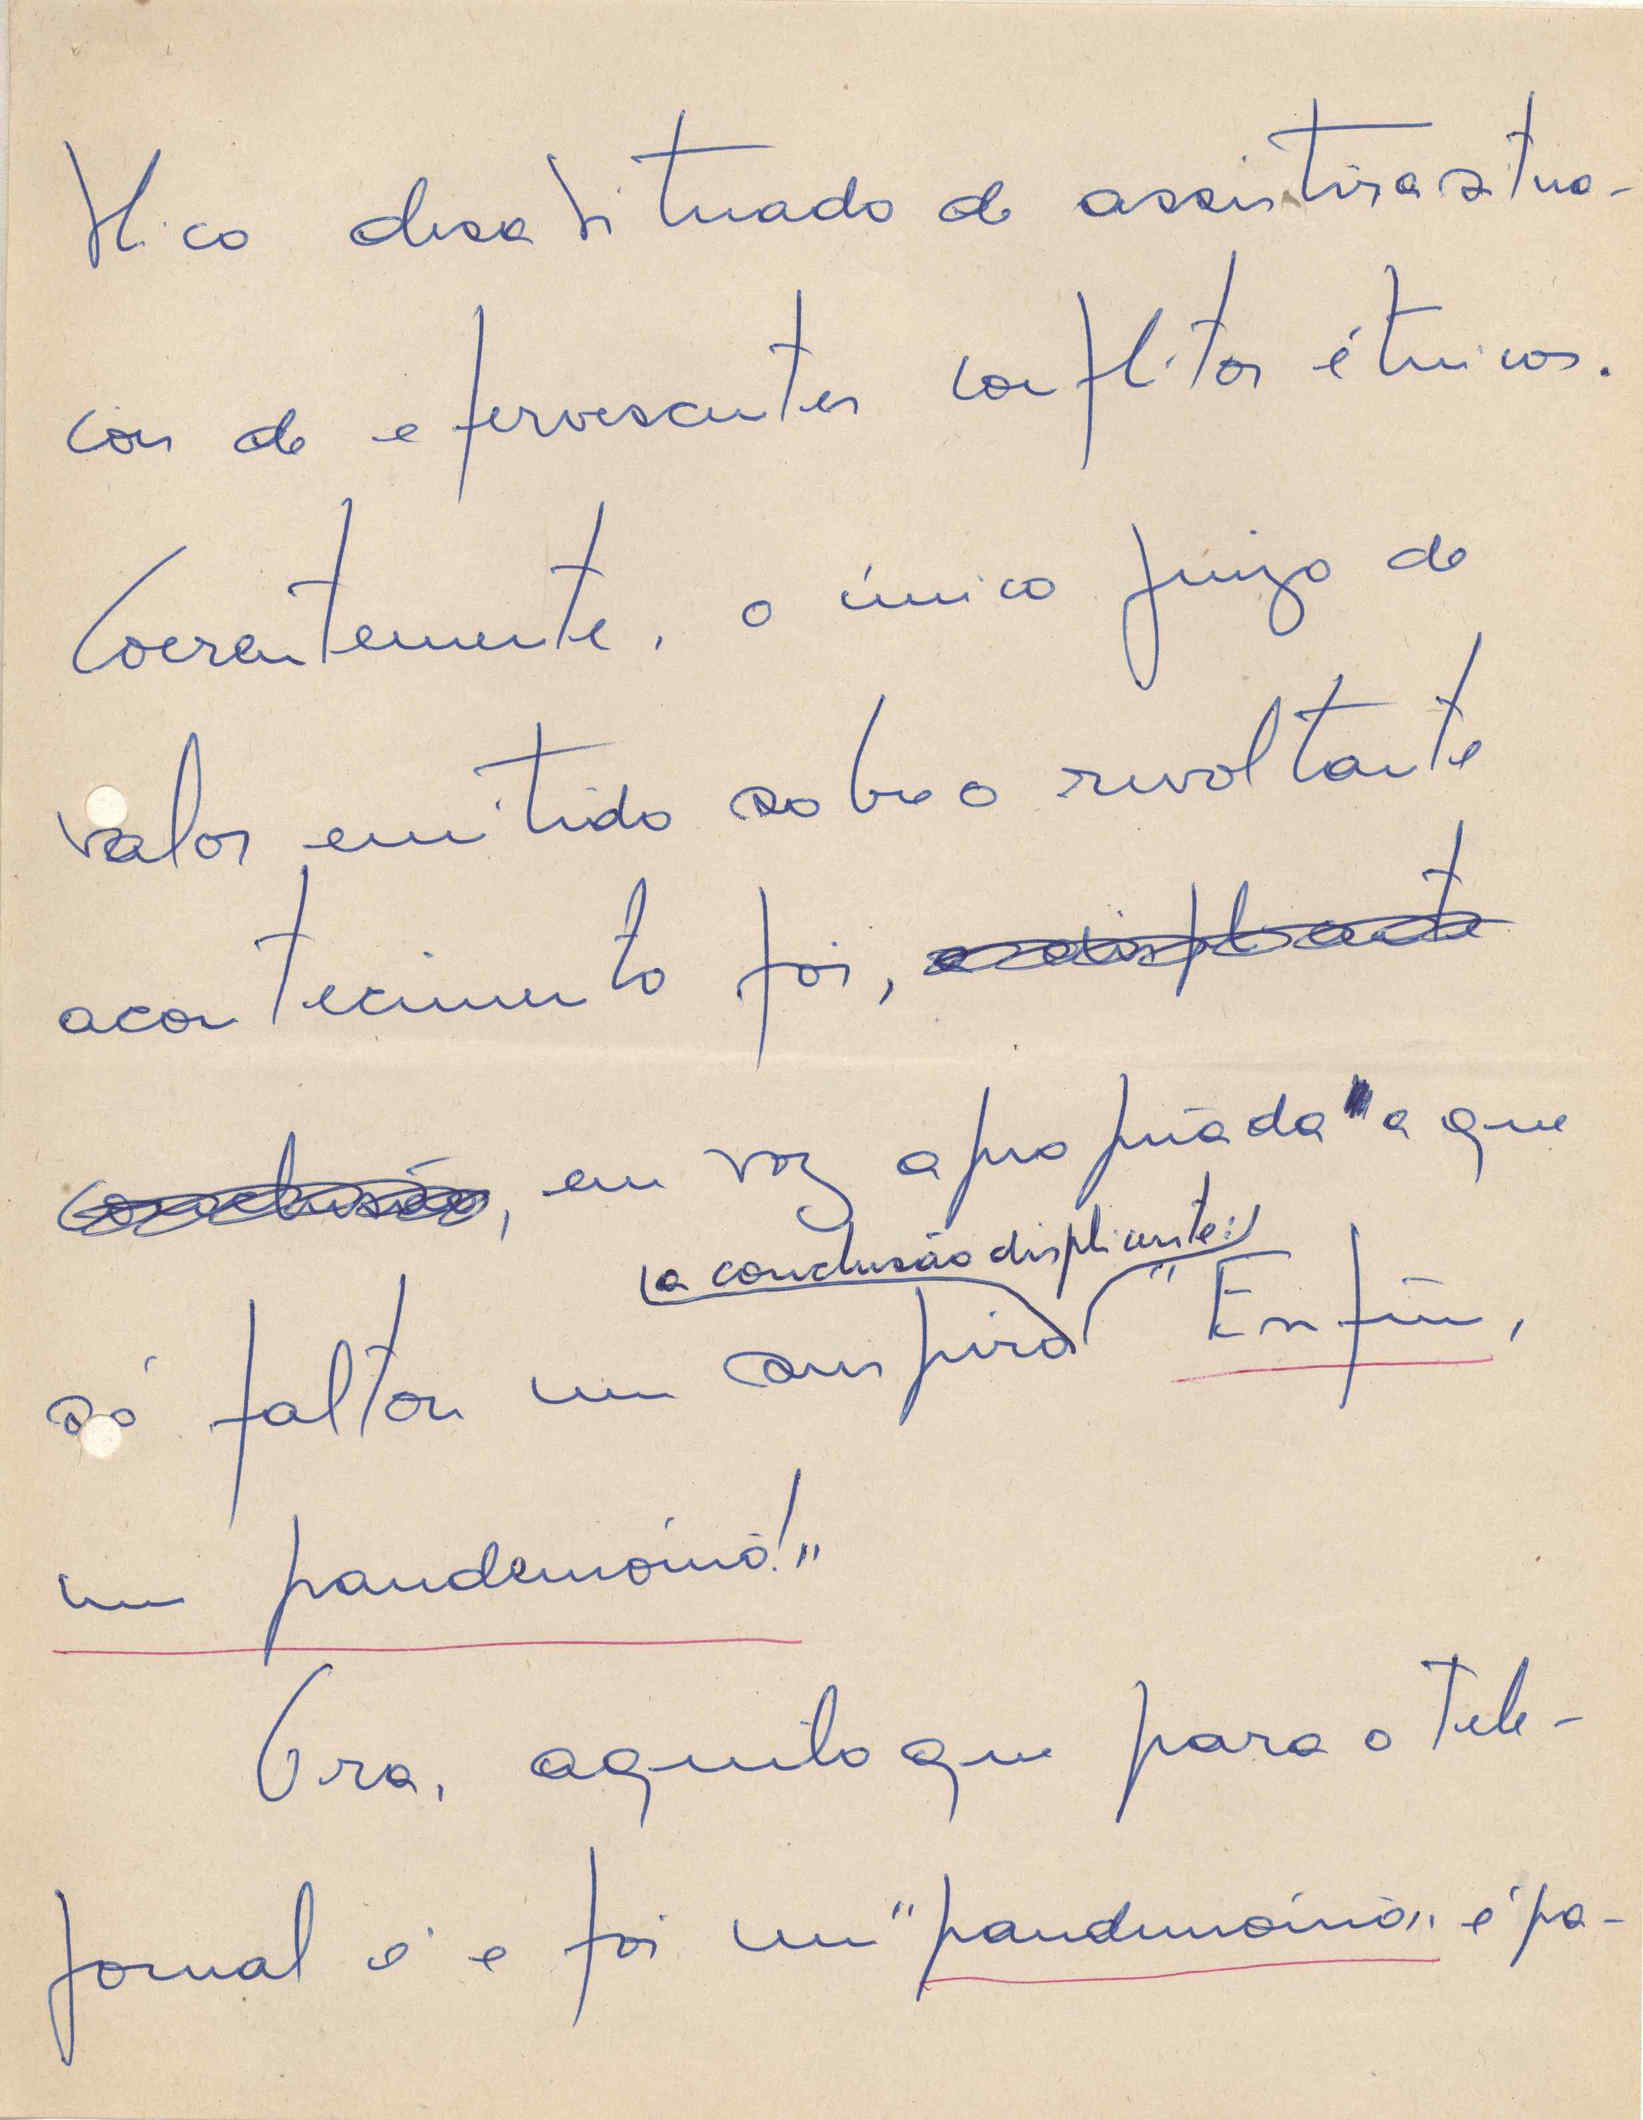 blico desabituado de assistir a situa-
ções de efervescentes conflitos étnicos.
Coerentemente, o único juízo de
valor emitido sobre o revoltante
acontecimento foi, a displicente
conclusão, em voz apropriada a que
(a conclusão displicente:)
só faltou um suspiro "Enfim,
um pandemónio!"
Ora, aquilo que para o Tele-
jornal é e foi um "pandemónio" é pa-